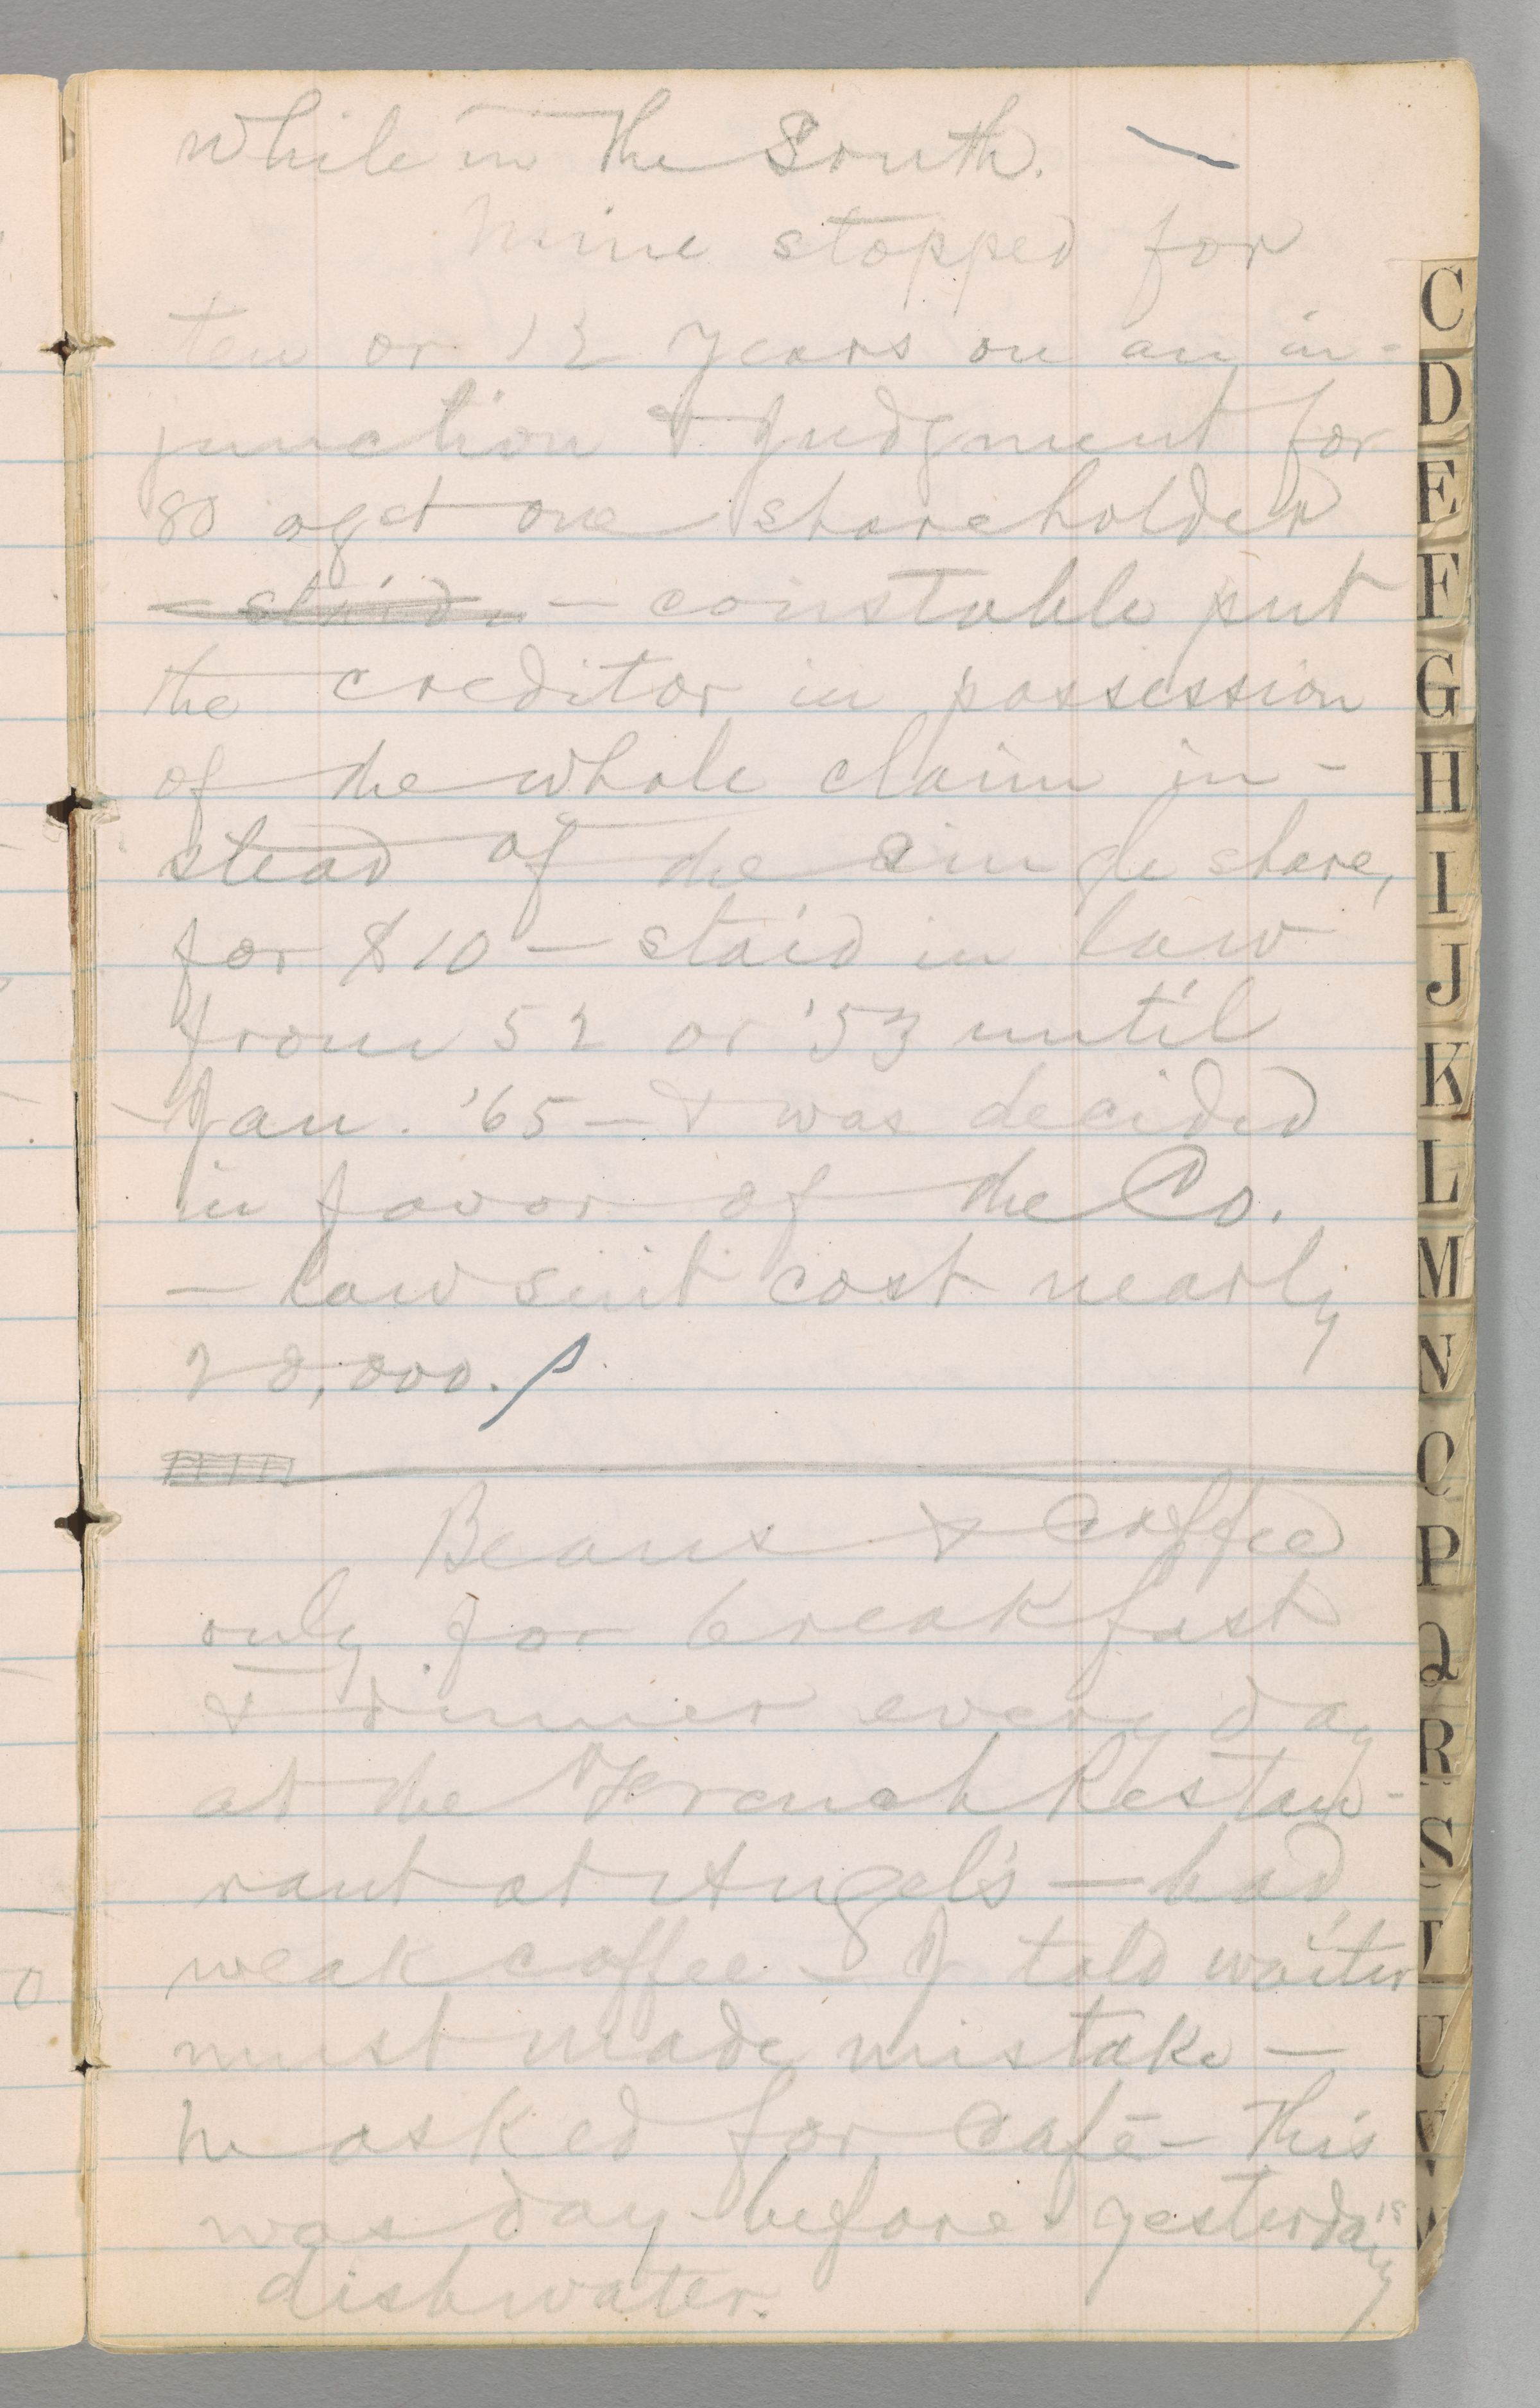 while in the South.
Mine stopped for
ten or 12 years on an in-
junction & judgment for
80 agst one shareholder
— constable put
the creditor in possession
of the whole claim in-
stead of the single share,
for $10 — staid in law
from 52 or '53 until
Jan. '65 — & was decided
in favor of the Co.
— law suit cost nearly
20,000.
Beans & Coffee
only for breakfast
& dinner every day
at the French Restau-
rant at Angel's — bad,
weak coffee — J told waiter
must made mistake —
he asked for café — this
was day-before-yesterday's
dishwater.
C
D
E
F
G
H
I
J
K
L
M
N
O
P
Q
R
S
T
U
V
W